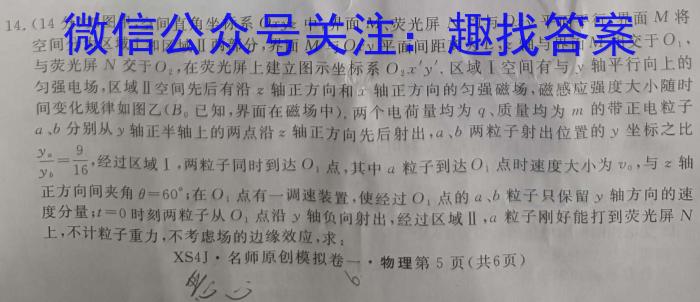 14.(14分)图 空间直角坐标系 中 界面 荧光屏 平 界面 M 将
微信公众号关注：趣找答案
空间 区域 区域Ⅱ 部分,界面 M 平面间距 与 交于 O₁、
与荧光屏 N 交于O₂,在荧光屏上建立图示坐标系 O₂x′y′.区域Ⅰ空间有与 y 轴平行向上的
匀强电场,区域Ⅱ空间先后有沿 z 轴正方向和 x 轴正方向的匀强磁场,磁感应强度大小随时
间变化规律如图乙(B₀ 已知,界面在磁场中).两个电荷量均为 q、质量均为 m 的带正电粒子
a、b 分别从 y 轴正半轴上的两点沿 z 轴正方向先后射出,a、b 两粒子射出位置的 y 坐标之比
yₐ/y_b=9/16,经过区域Ⅰ,两粒子同时到达 O₁ 点,其中 a 粒子到达 O₁ 点时速度大小为 v₀,与 z 轴
正方向间夹角 θ=60°;在 O₁ 点有一调速装置,使经过 O₁ 点的 a、b 粒子只保留 y 轴方向的速
度分量;t=0 时刻两粒子从 O₁ 点沿 y 轴负向射出,经过区域Ⅱ,a 粒子刚好能打到荧光屏 N
上,不计粒子重力,不考虑场的边缘效应,求:
XS4J·名师原创模拟卷一·物理第 5 页(共6页)